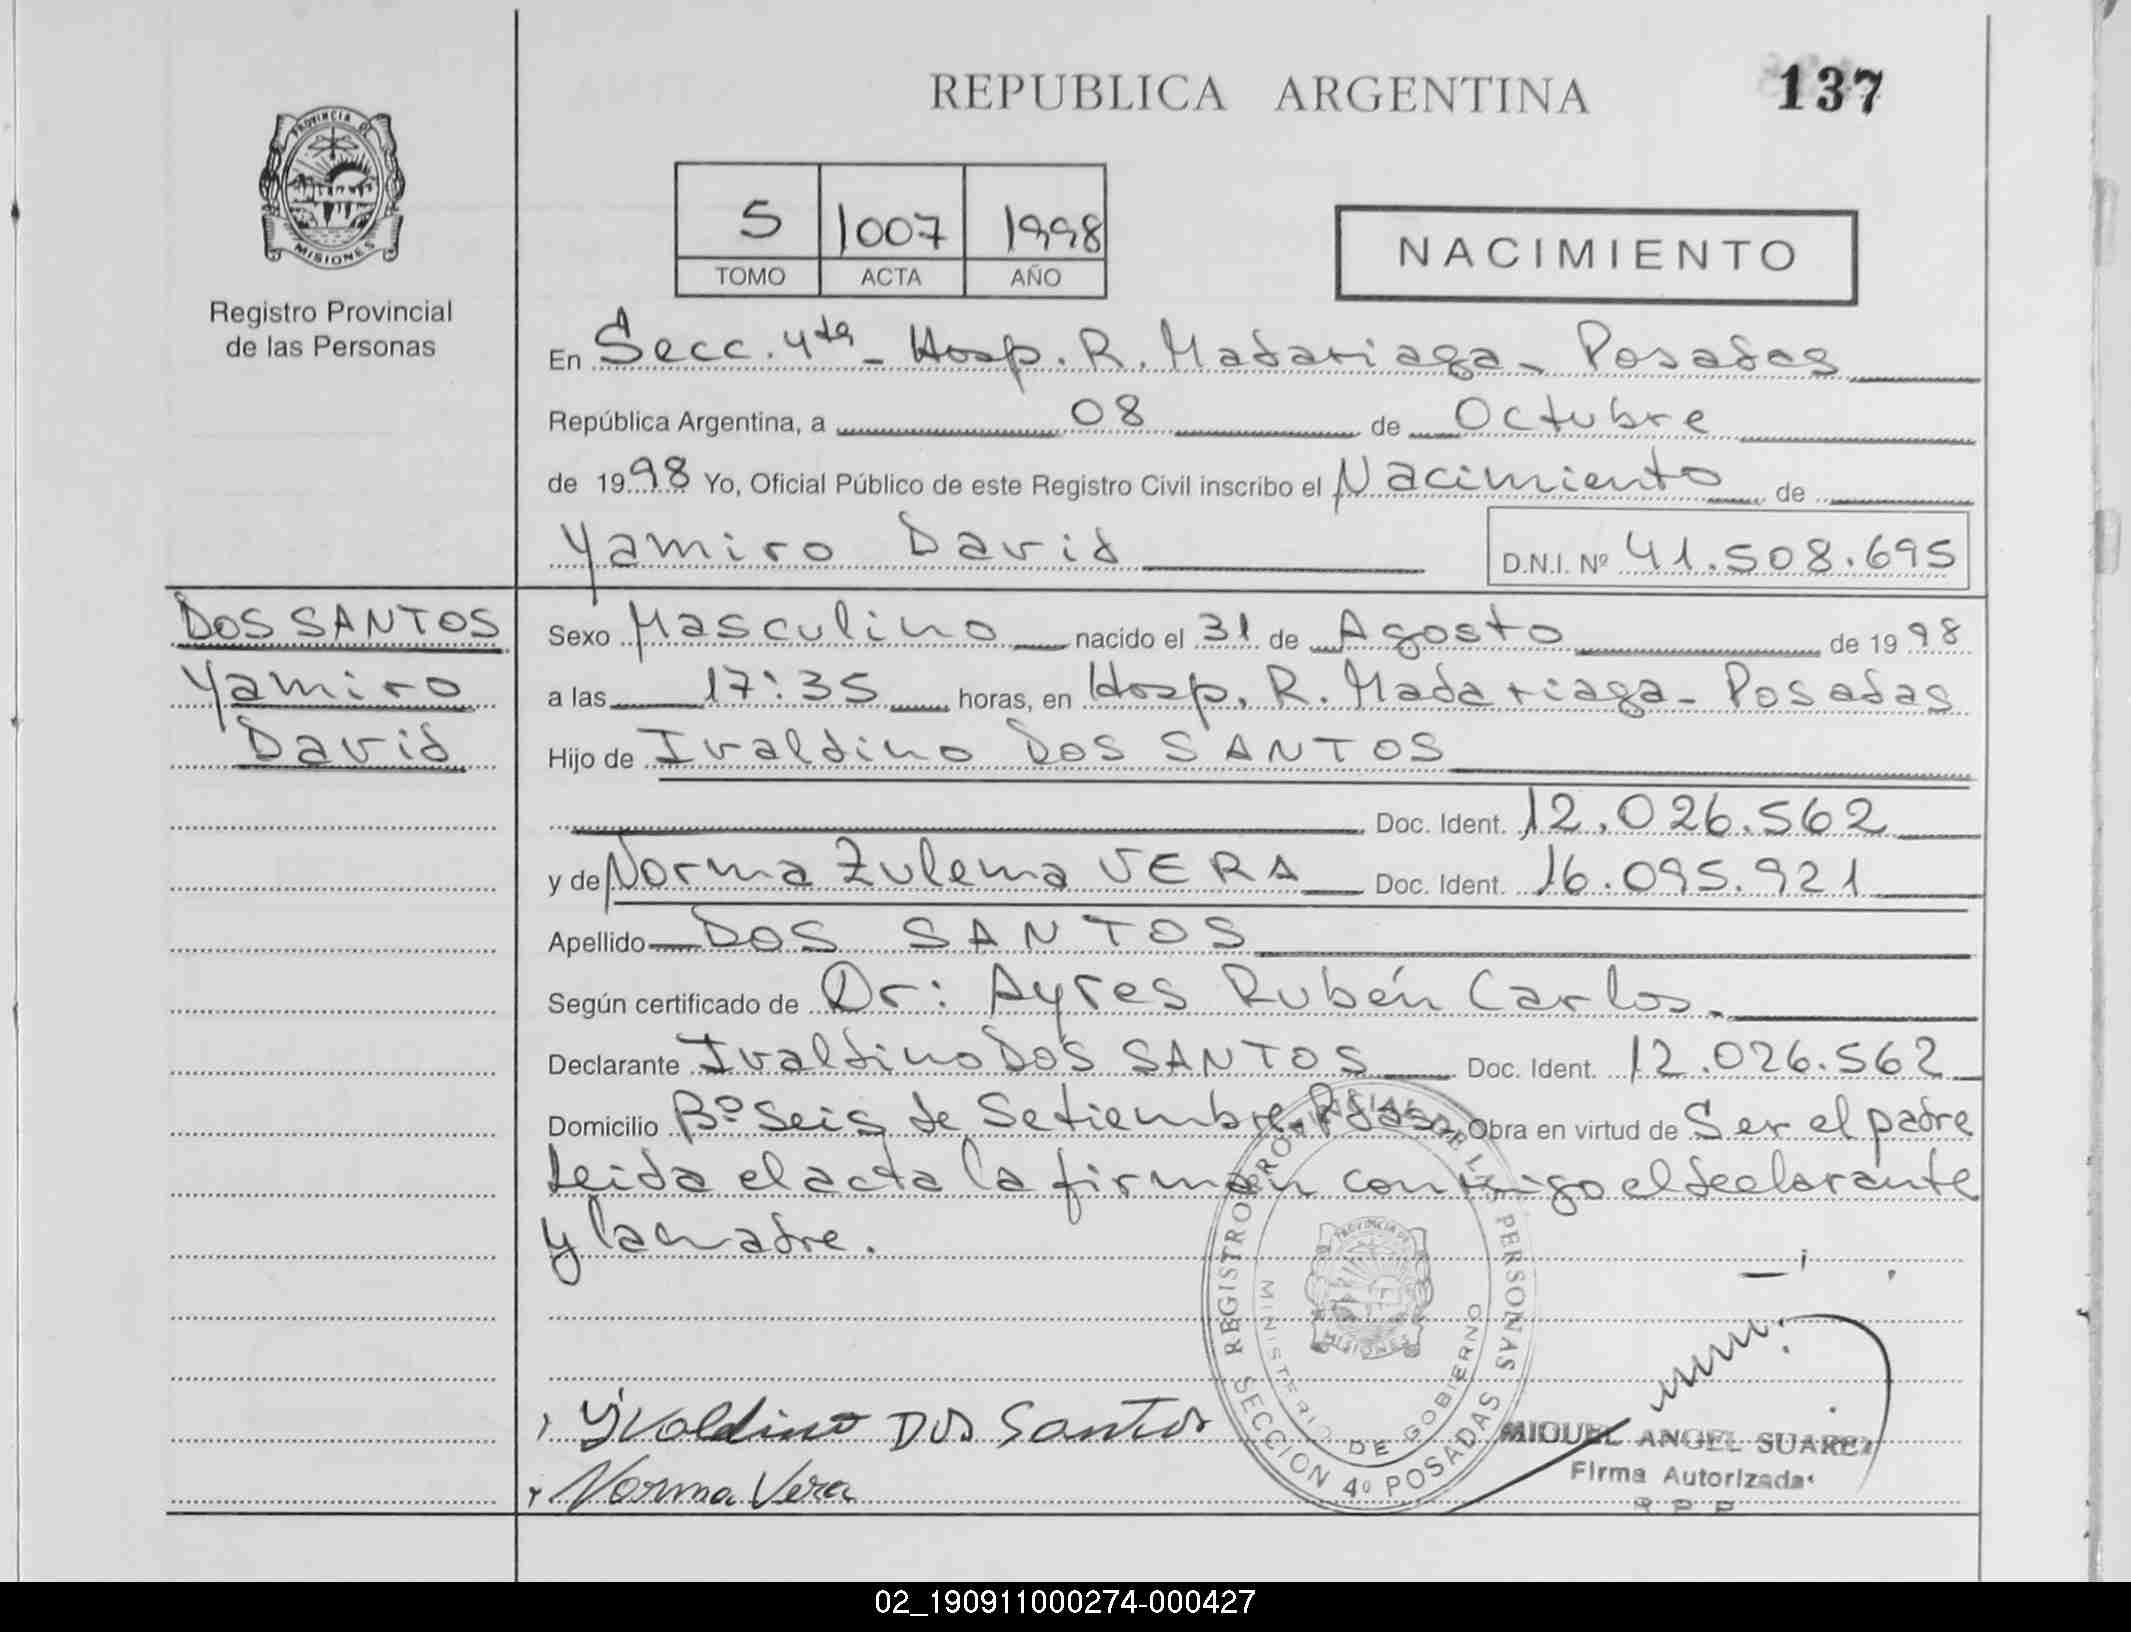 REPUBLICA ARGENTINA
137
PROVINCIA DE
MISIONES
Registro Provincial
de las Personas
5 1007 1998
TOMO ACTA AÑO
NACIMIENTO
En Secc. 4ta - Hosp. R. Madariaga - Posadas
República Argentina, a 08 de Octubre
de 1998 Yo, Oficial Público de este Registro Civil inscribo el Nacimiento de
Yamiro David D.N.I. Nº 41.508.695
DOS SANTOS
Yamiro
David
Sexo Masculino nacido el 31 de Agosto de 1998
a las 17:35 horas, en Hosp. R. Madariaga - Posadas
Hijo de Ivaldino DOS SANTOS
Doc. Ident. 12.026.562
y de Norma Zulema VERA Doc. Ident. 16.095.921
Apellido DOS SANTOS
Según certificado de Dr: Ayres Rubén Carlos.
Declarante Ivaldino DOS SANTOS Doc. Ident. 12.026.562
Domicilio Bº Seis de Setiembre - Pdas. Obra en virtud de Ser el padre
Leida el acta la firman conmigo el declarante
y la madre.
REGISTRO PROVINCIAL DE LAS PERSONAS
MINISTERIO DE GOBIERNO
SECCION 4º POSADAS
PROVINCIA DE
MISIONES
Yvaldino DOS Santos
Norma Vera
MIGUEL ANGEL SUAREZ
Firma Autorizada
R P P
02_190911000274-000427